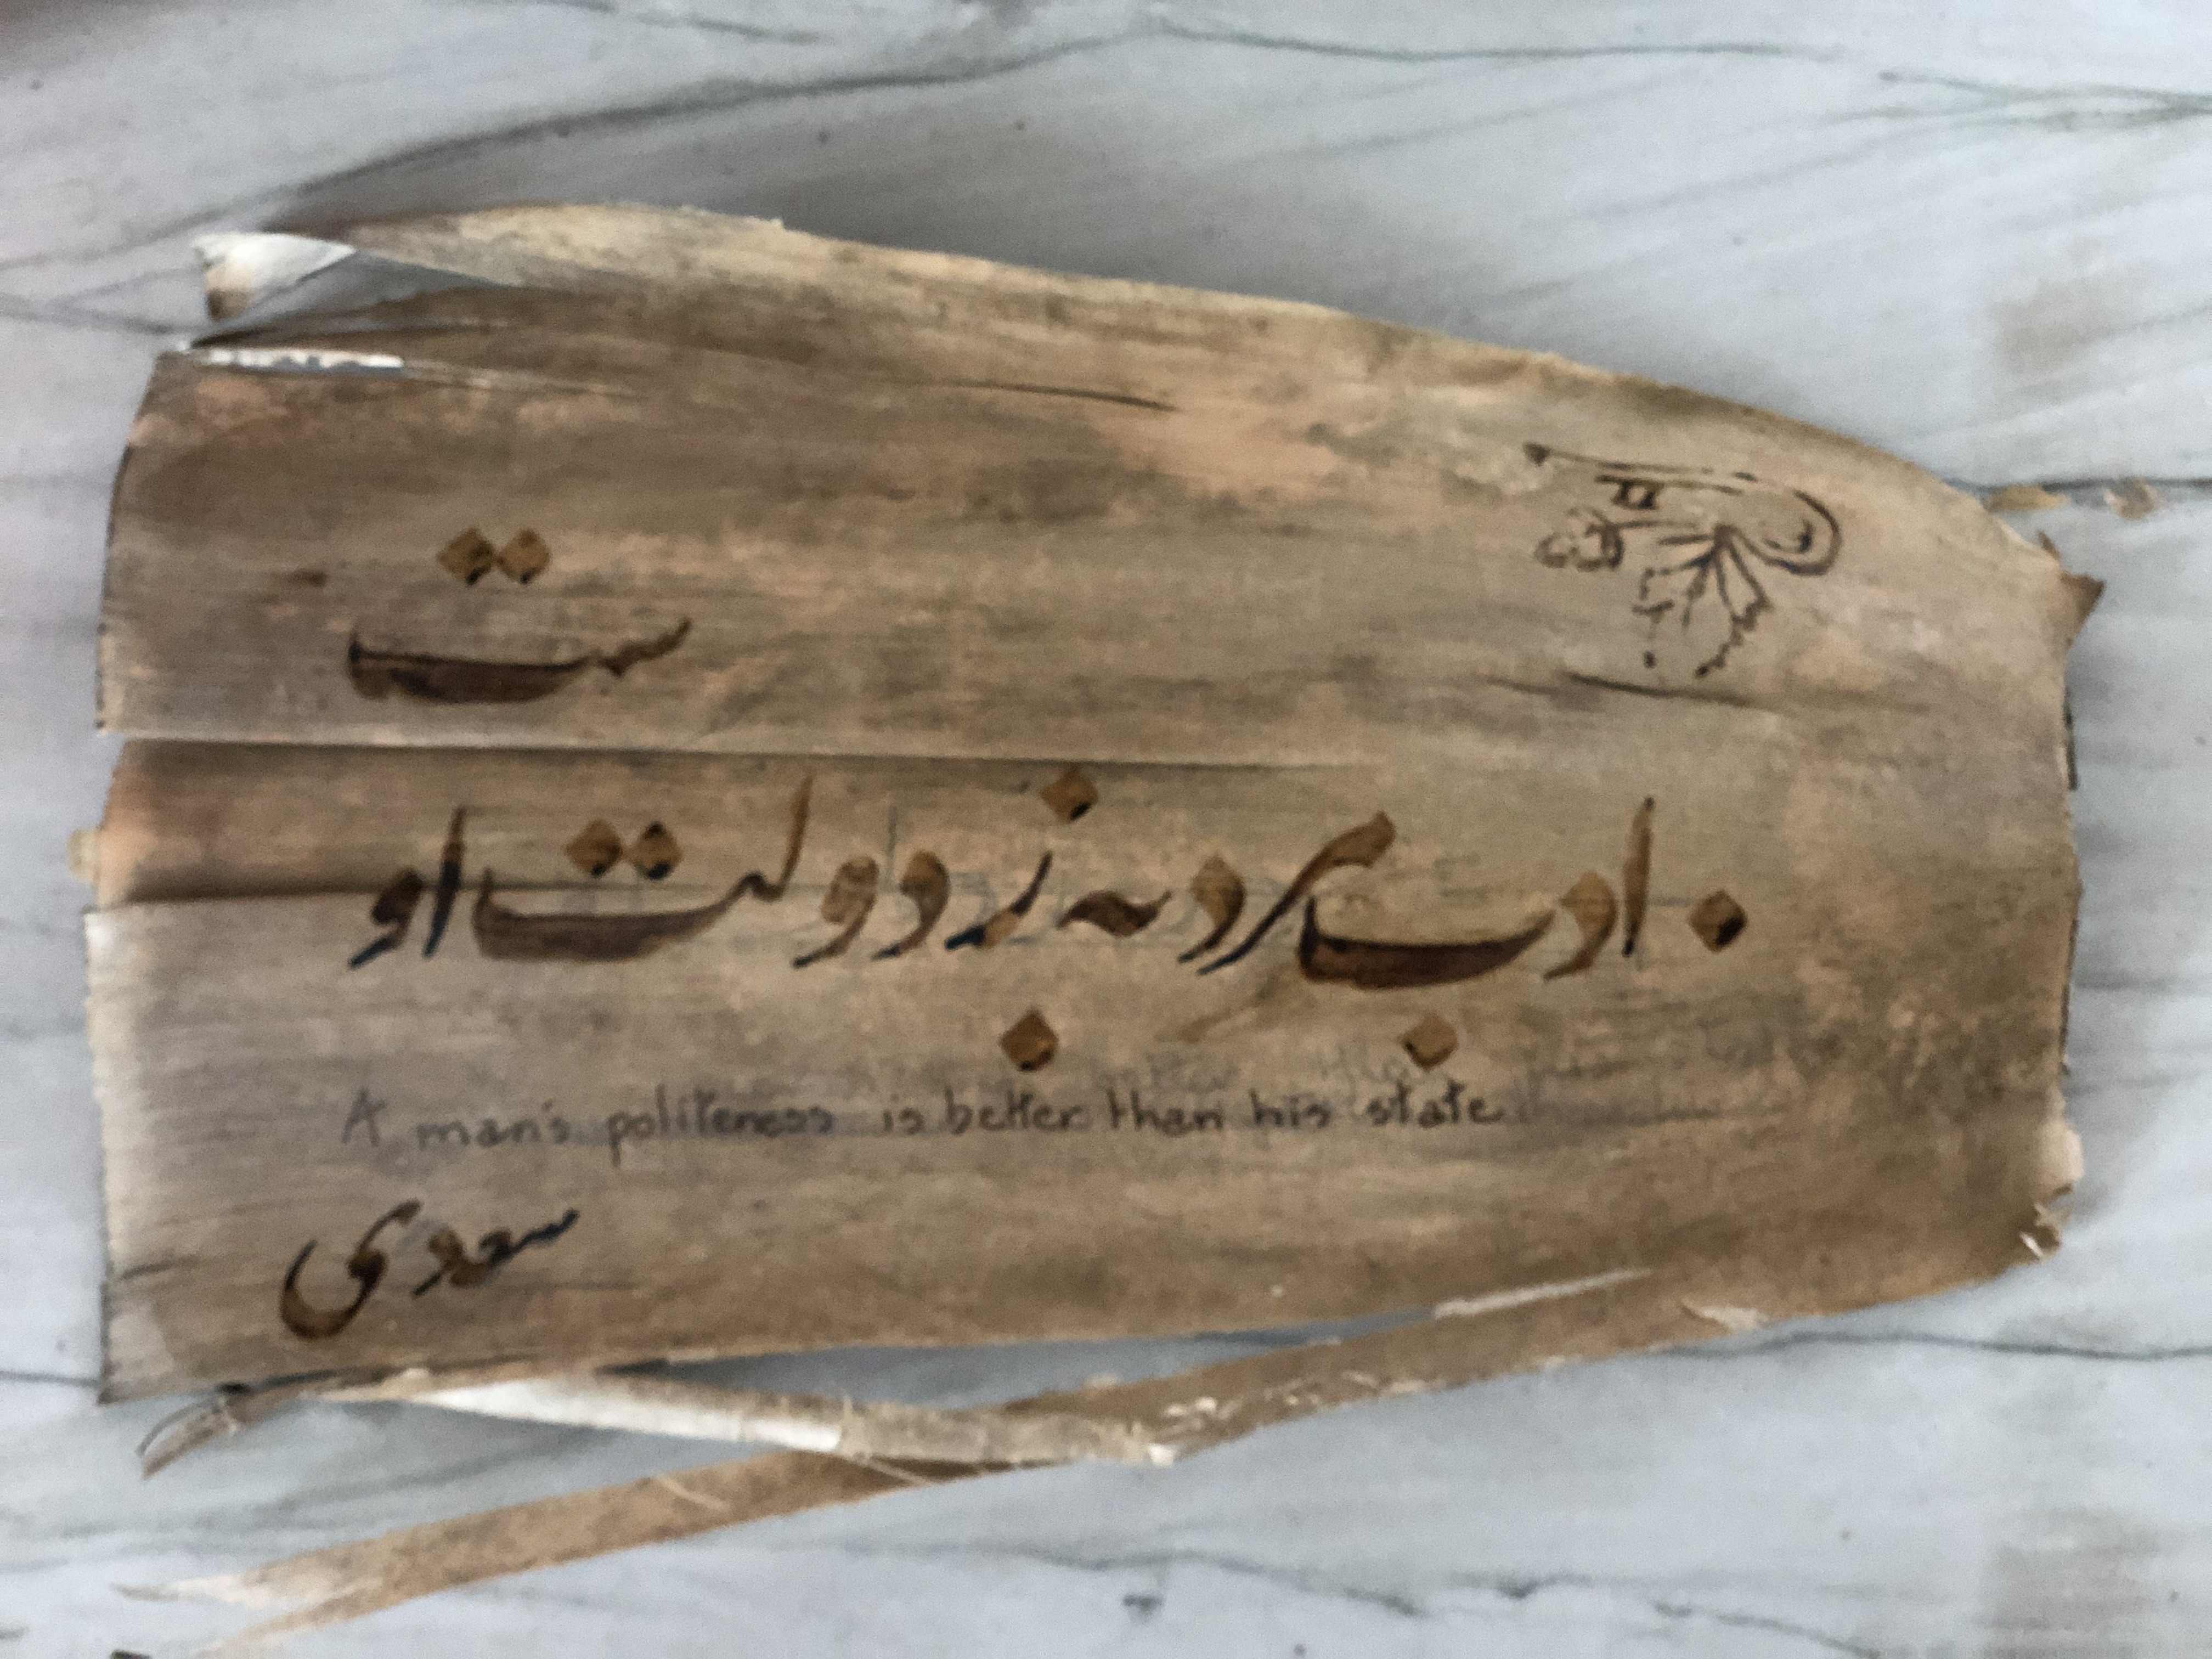 ست
ادب مرد به ز دولت او
A man's politeness is better than his state
سعدی